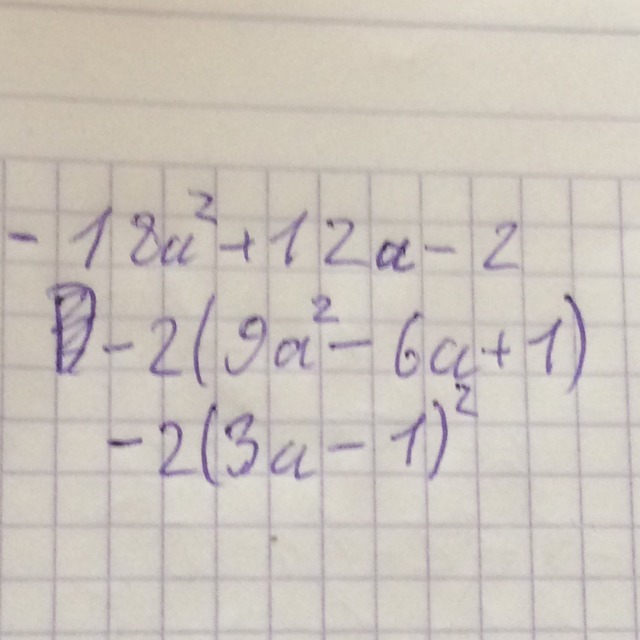 - 18a²+12a-2
-2(9a²-6a+1)
-2(3a-1)²